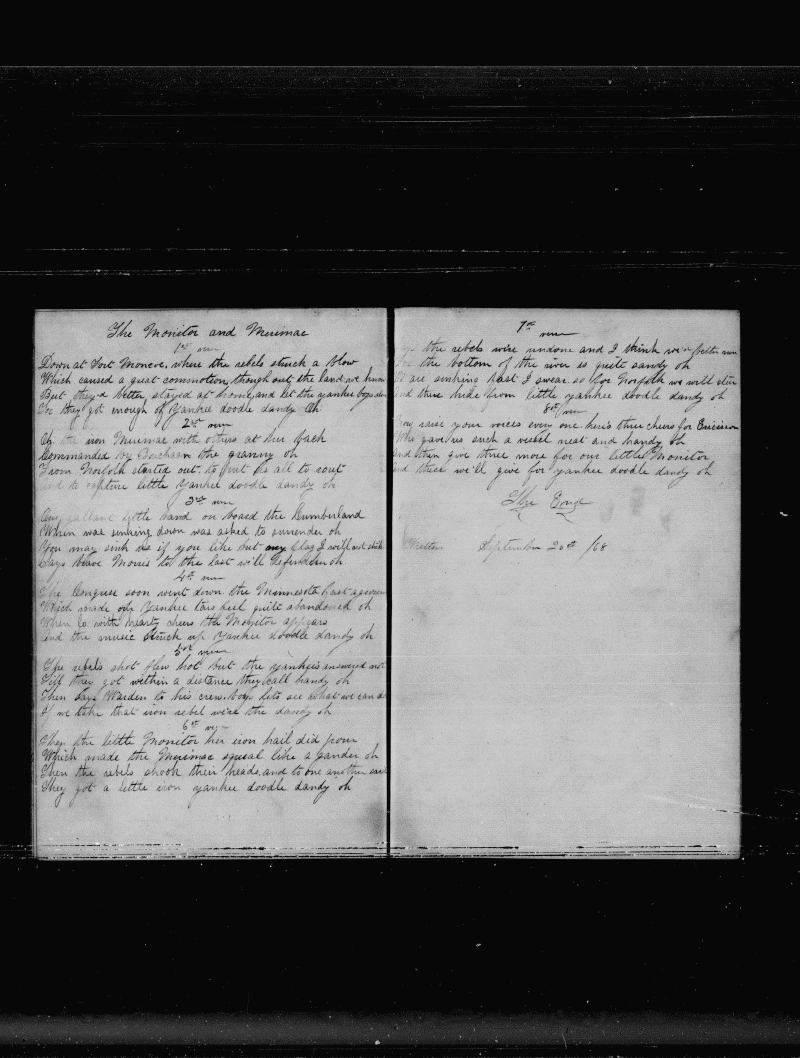 The Monitor and Merimac
1st
Down at Fort Monroe, where the rebels struck a blow
Which caused a great commotion though out the land we know
But they'd better stayed at home, and let the yankee boys alone
For they got enough of Yankee doodle dandy Oh
2nd
the iron Merimac with others at her back
Commanded by Buchann the granny oh
From Norfolk started out to put us all to rout
and to capture little Yankee doodle dandy oh
3rd
Our gallant little band on board the Cumberland
When was sinking down was asked to surrender oh
You may sink us if you like but my flag I will not strike
Says brave Morris to the last will defend her oh
4th
The Congress soon went down the Minnesota fast aground
Which made our Yankee tars feel quite abandoned oh
When lo with hearty cheers the Monitor appears
And the music struck up Yankee doodle dandy oh
5th
The rebels shot flew hot but the yankees answered not
Till they got within a distance they call handy oh
Then says Warden to his crew boys lets see what we can do
If we take that iron rebel we're the dandy oh
6th
Then the little Monitor her iron hail did pour
Which made the Merimac squeal like a gander oh
Then the rebels shook their heads, and to one another said
They got a little iron yankee doodle dandy oh
7th
the rebels were undone and I think we'r better run
the bottom of the river is quite sandy oh
We are sinking fast I swear so for Norfolk we will steer
And there hide from little yankee doodle dandy oh
8th
Now raise your voices every one here's three cheers for Ericcson
Who gave us such a vessel neat and handy oh
And then give three more for our little Monitor
And three we'll give for yankee doodle dandy oh
The End
September 20th /68